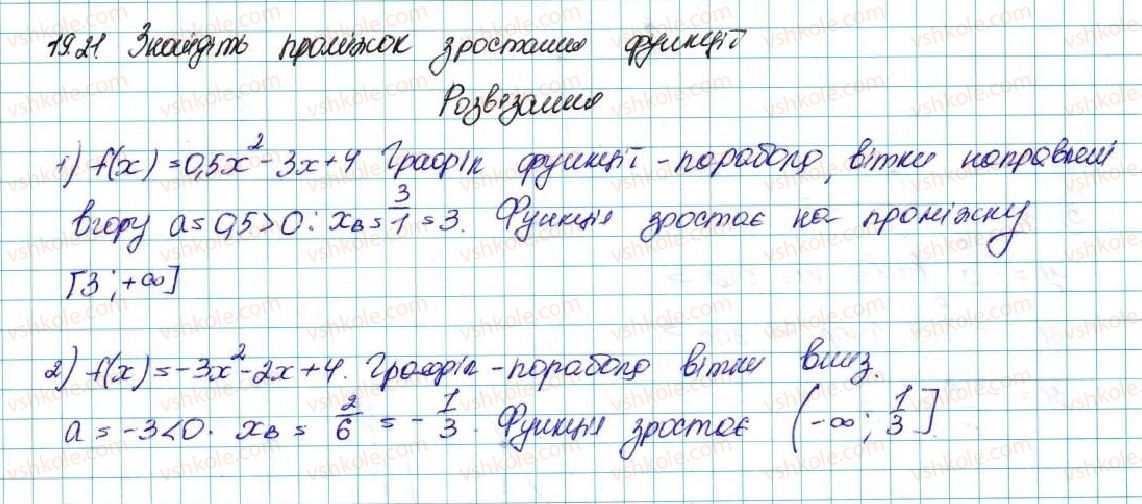 19.21. Знайдіть проміжок зростання функції
Розв'язання
1) f(x) = 0,5x² - 3x + 4 Графік функції - парабола, вітки направлені
вгору a = 0,5 > 0 : xв = 3/1 = 3. Функція зростає на проміжку
[3 ; +∞]
2) f(x) = -3x² - 2x + 4. Графік - парабола вітки вниз.
a = -3 < 0. xв = 2/6 = - 1/3. Функція зростає (-∞ ; 1/3].
vshkole.com